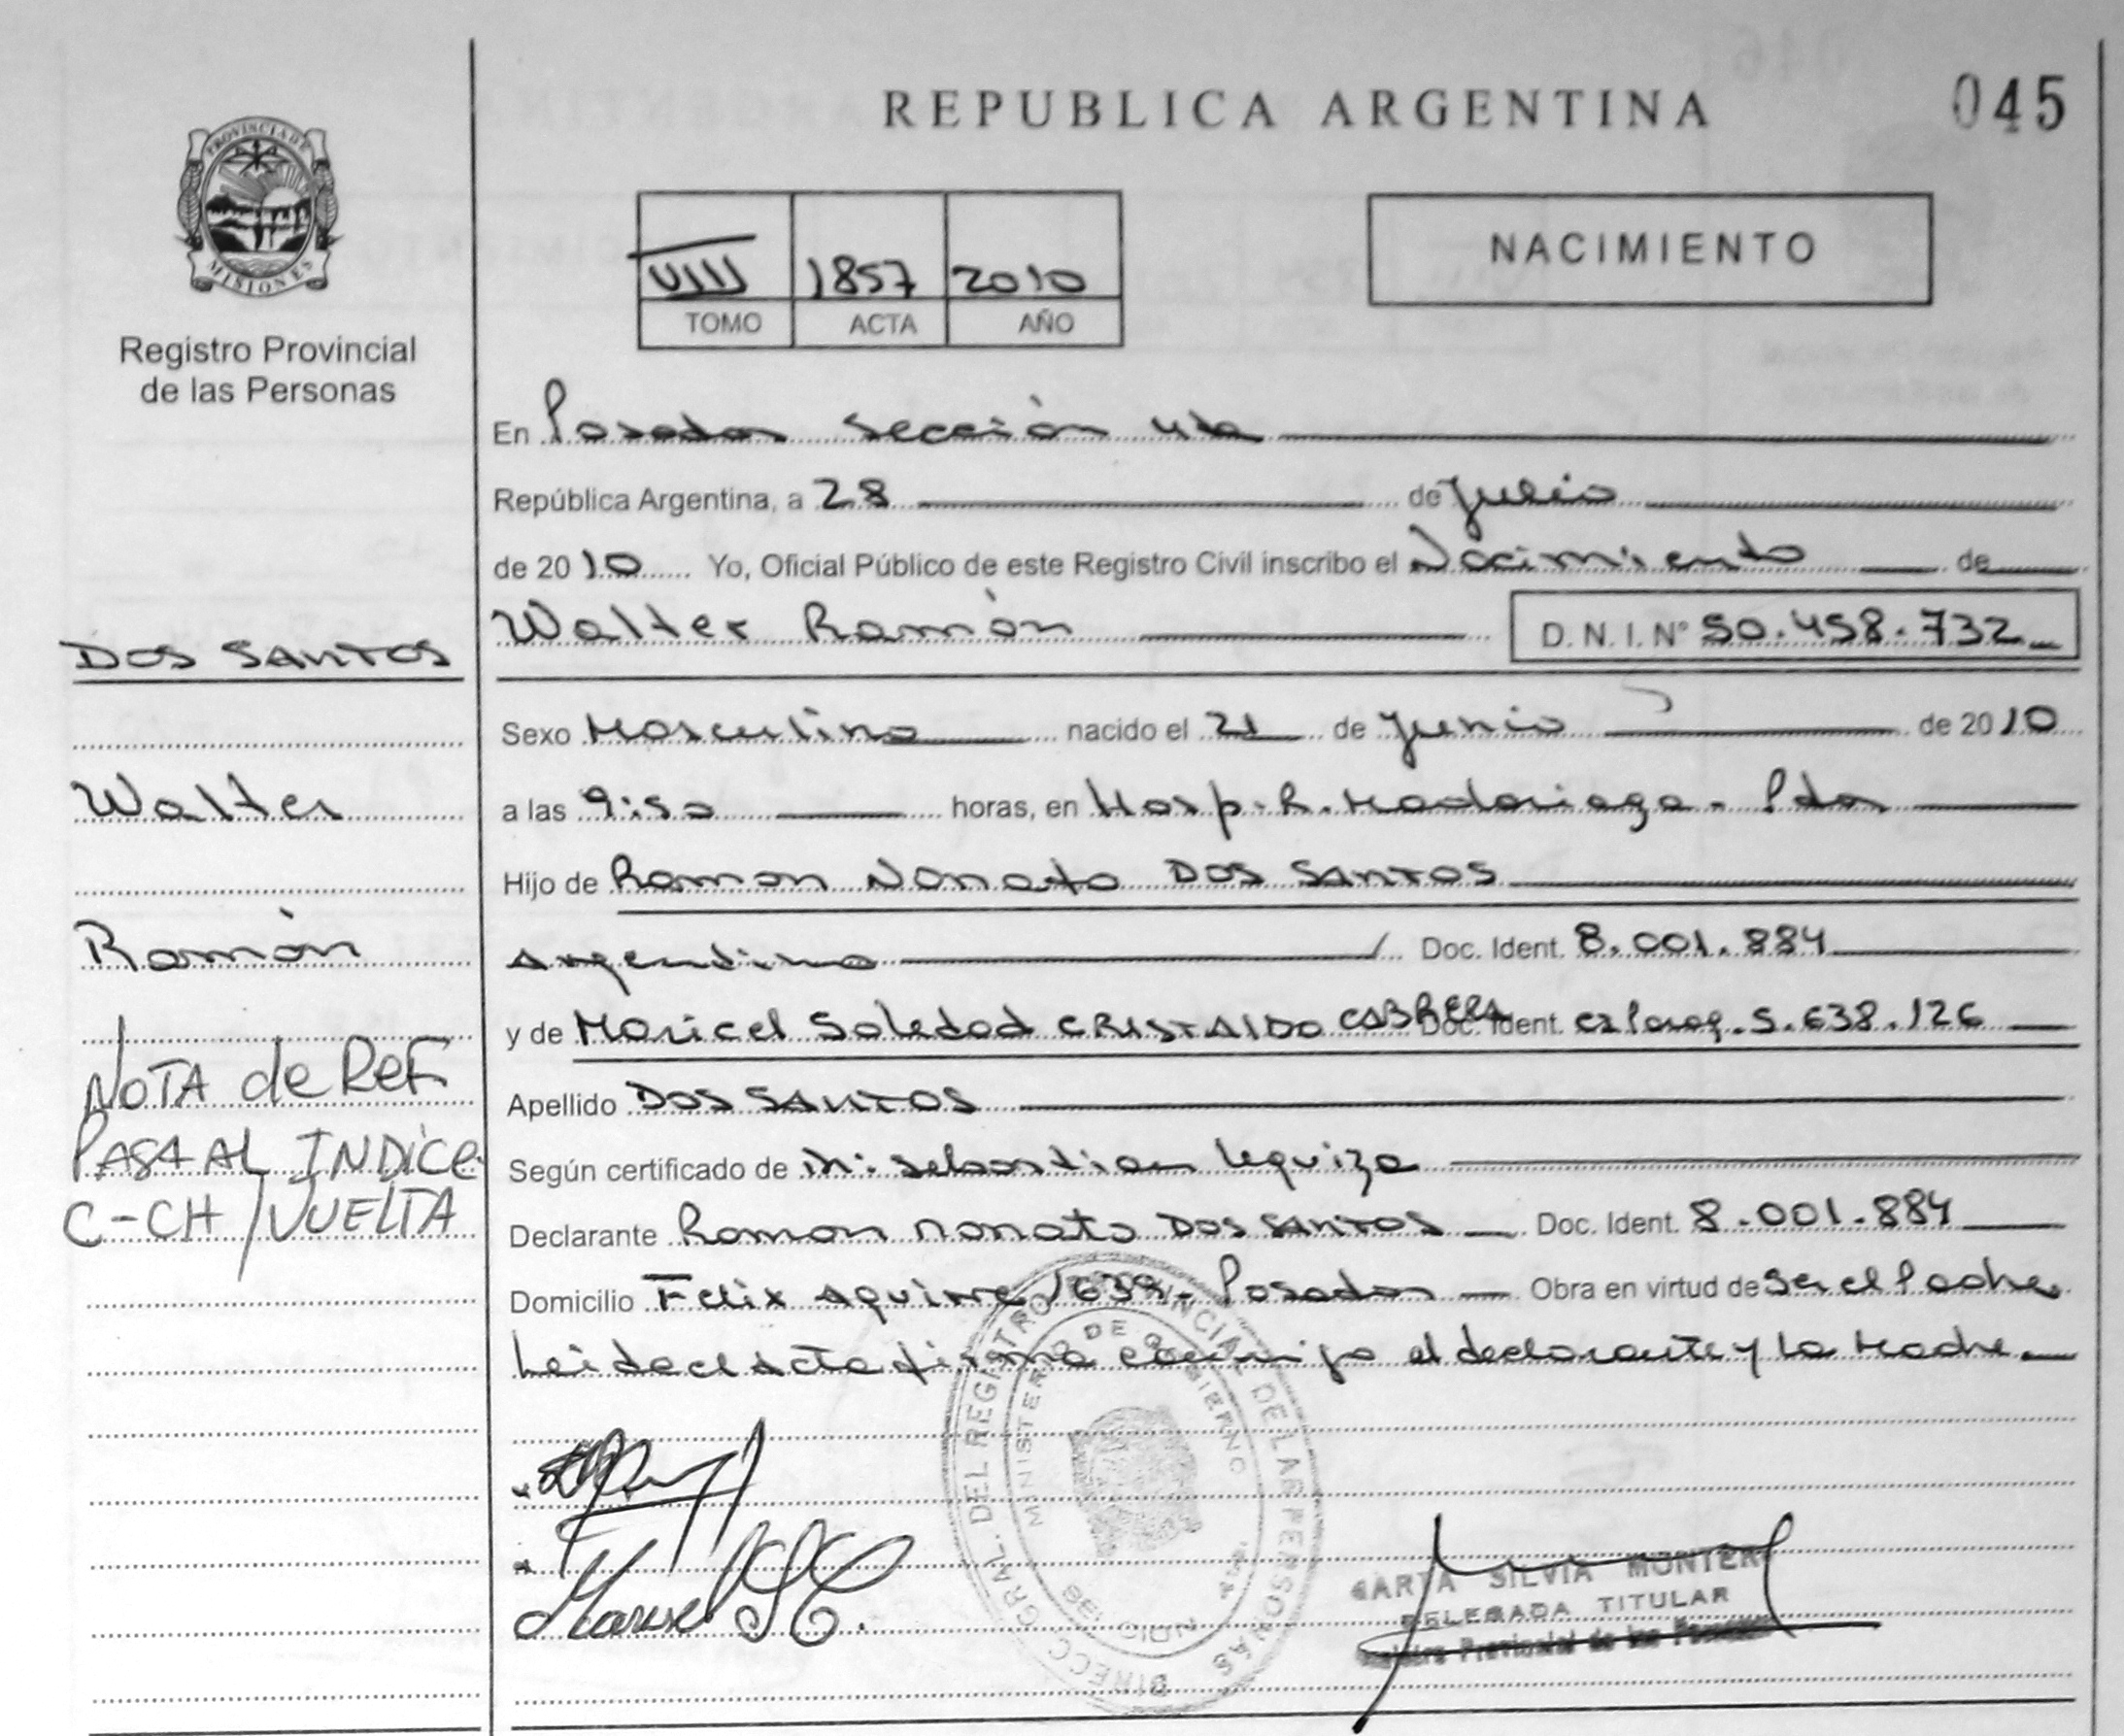 REPUBLICA ARGENTINA
045
PROVINCIA DE
MISIONES
Registro Provincial
de las Personas
VIII 1857 2010
TOMO ACTA AÑO
NACIMIENTO
En Posadas Sección 4ta
República Argentina, a 28 de Julio
de 2010 Yo, Oficial Público de este Registro Civil inscribo el Nacimiento de
Walter Ramón D.N.I. Nº 50.458.732
Sexo Masculino nacido el 21 de Junio de 2010
a las 9:50 horas, en Hosp. R. Madariaga - Pdas
Hijo de Ramon Nonato DOS SANTOS
Argentino Doc. Ident. 8.001.884
y de Maricel Soledad CRISTALDO CABRERA Doc. Ident. CI Parag. 5.638.126
Apellido DOS SANTOS
Según certificado de Sebastian Leguiza
Declarante Ramon Nonato DOS SANTOS Doc. Ident. 8.001.884
Domicilio Felix Aguirre 1639 - Posadas Obra en virtud de ser el Padre
Leída el acta firma conmigo el declarante y la Madre.
DOS SANTOS
Walter
Ramón
NOTA de REF
PASA AL INDICE
C-CH/VUELTA
DIRECC GRAL. DEL REGISTRO PROVINCIAL DE LAS PERSONAS
MINISTERIO DE GOBIERNO
SILVIA MONTERO
DELEGADA TITULAR
Registro Provincial de las Personas